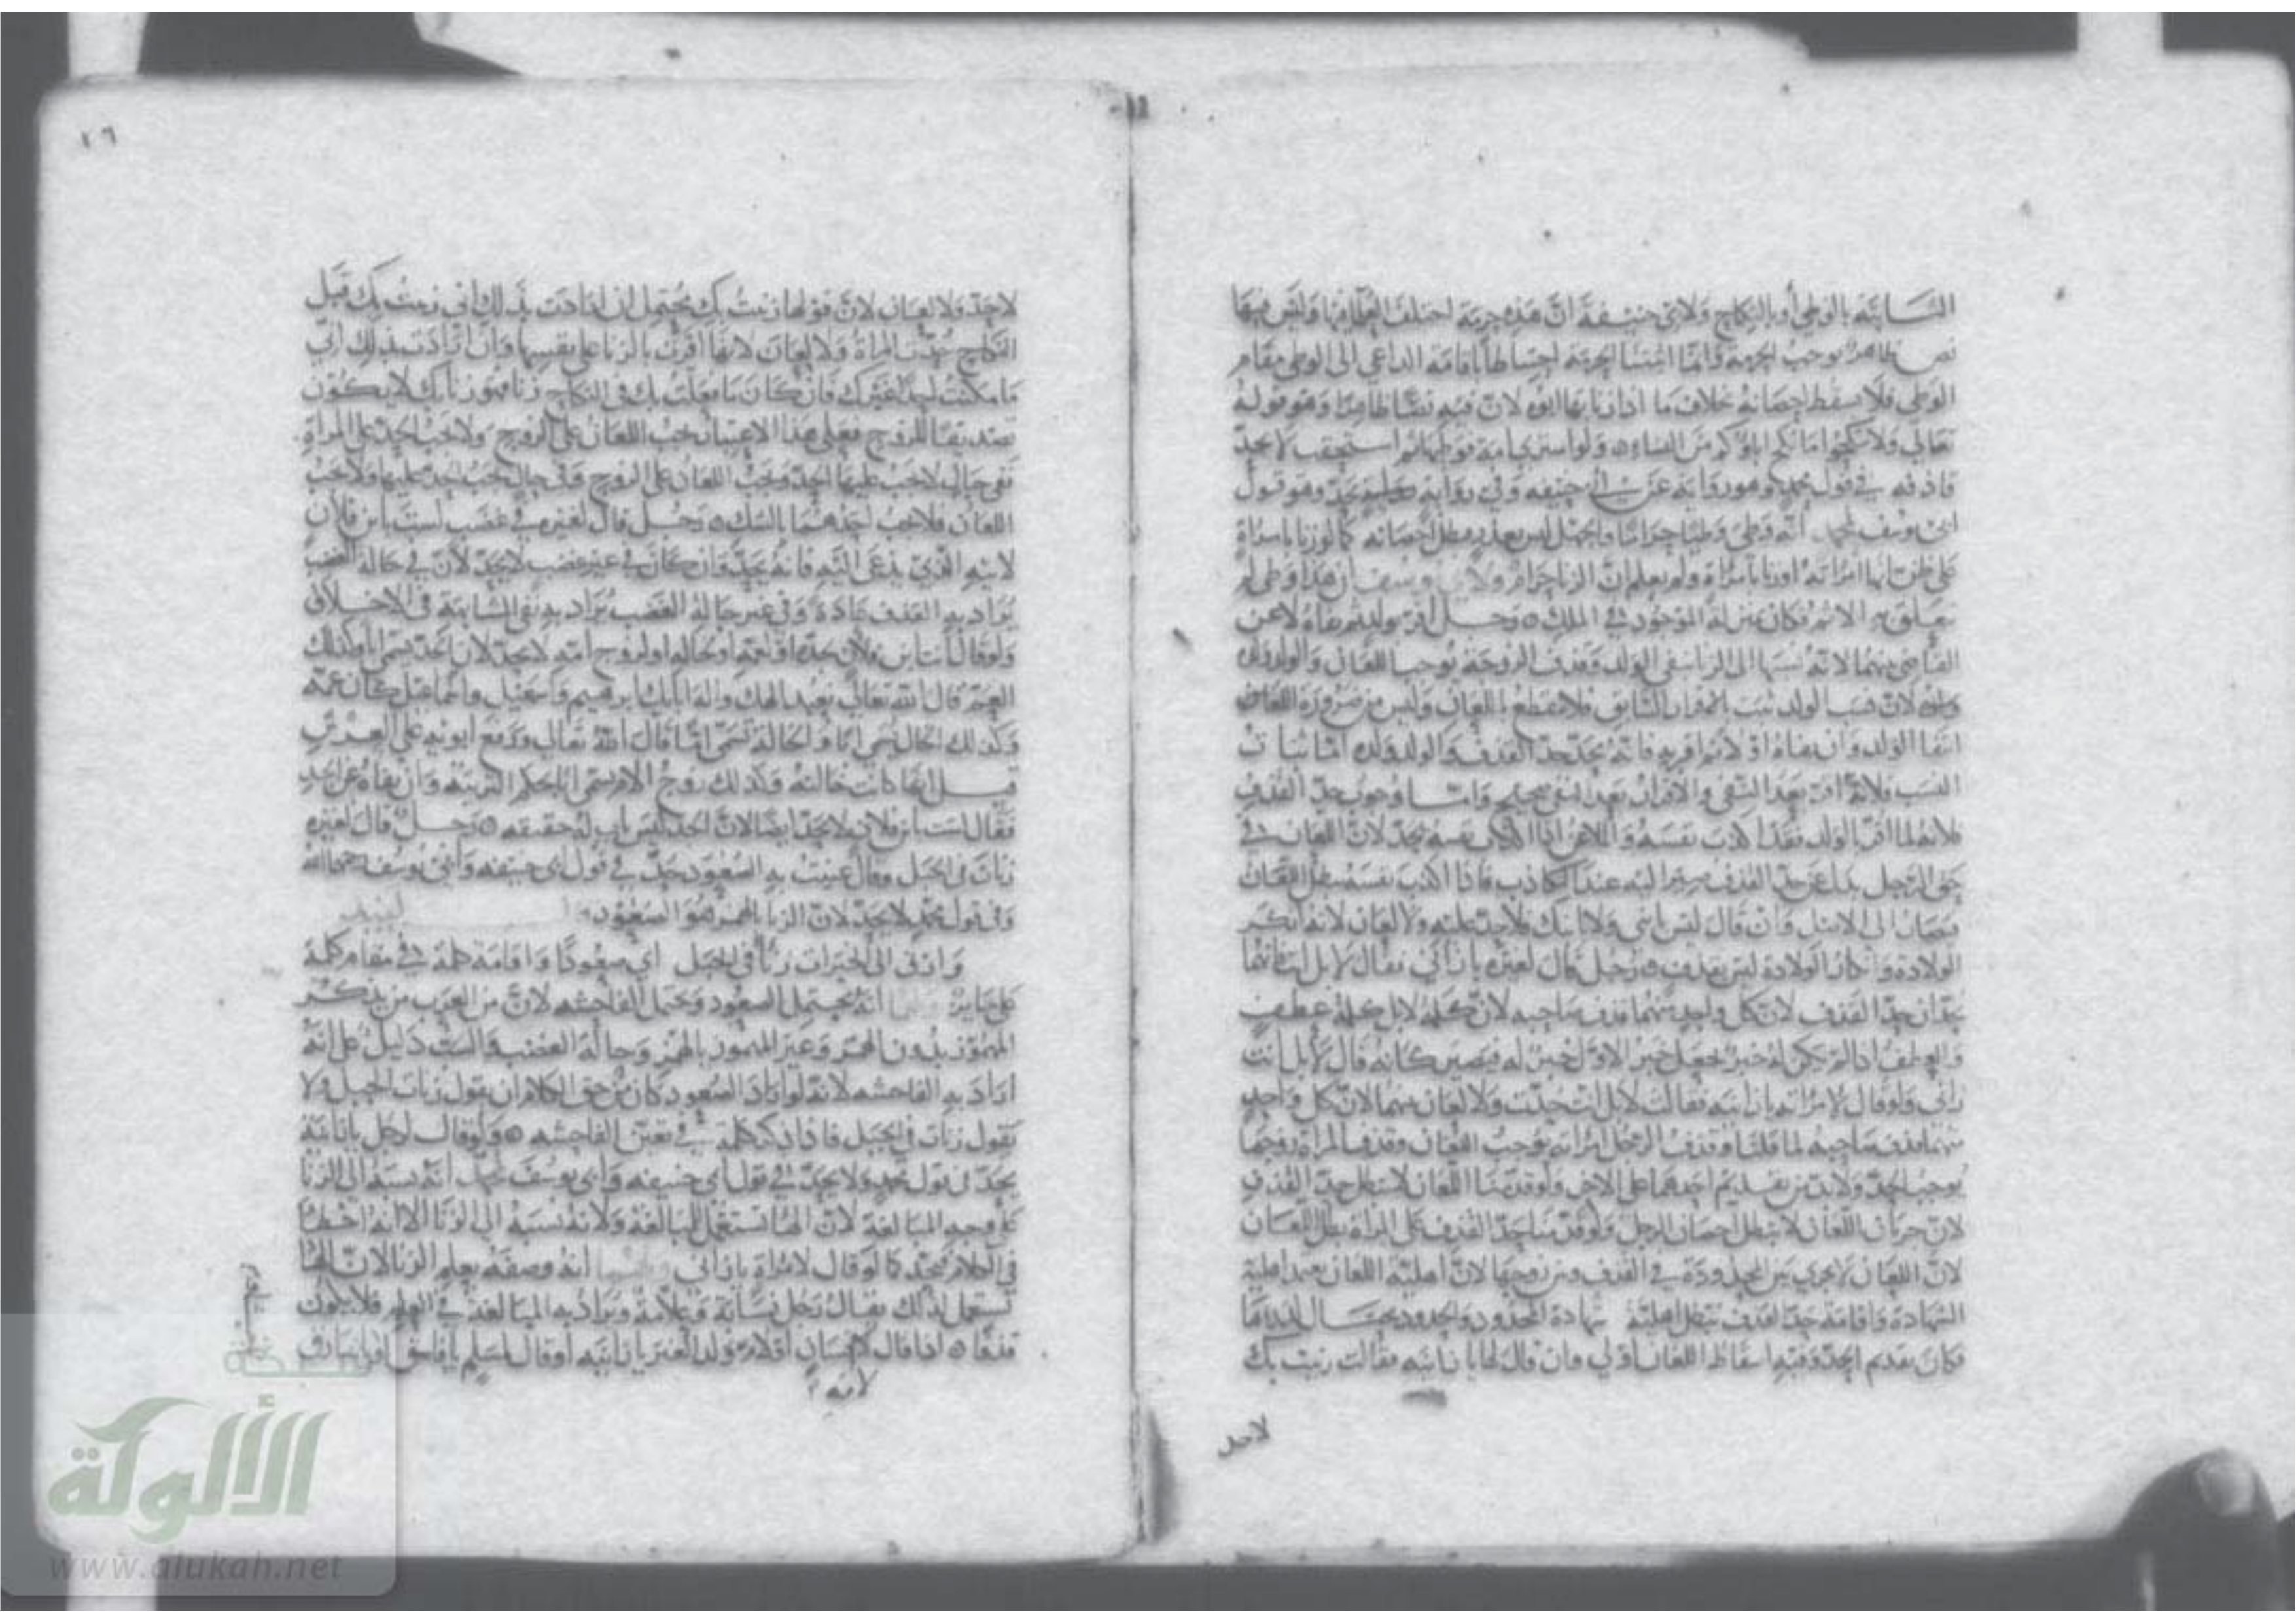 الثابتة بالوطي أو بالنكاح ولابى حنيفة ان هذه حرمة اختلف العلما فيها وليس فيها
نص ظاهر يوجب الحرمة وانما اثبتنا الحرمة احتياطا باقامة الداعي الى الوطي مقام
الوطي فلا يسقط احصانه بخلاف ما اذا زنا بها ابوه لان فيه نصا ظاهرا وهو قوله
تعالى ولا تنكحوا ما نكح اباؤكم من النساء ه ولو اشترى امة فوطيها ثم استحقت لا يحد
قاذفه في قول محمد وهو رواية عن أبي حنيفه وفي رواية يحد وهو قول
ابى يوسف انه وطي وطيا حراما والجهل ليس بعذر فبطل احصانه كما لو زنا بامراة
على ظن انها امراته او زنا بامراة ولم يعلم ان الزنا حرام ولابى يوسف أن هذا وطي لم
يتعلق به الاثم فكان بمنزلة الموجود في الملك ه رجل اقر بولد ثم نفاه لاعن
القاضي بينهما لانه نسبها الى الزنا بنفى الولد وقذف الزوجة يوجب اللعان والولد ولده
لان نسب الولد ثبت بالاقرار السابق فلا ينقطع باللعان وليس من ضرورة اللعان
انتفا الولد وان نفاه اولا ثم اقر به فانه يحد حد القذف والولد ولده اما ثبات
النسب فلانه اقر بعد النفى والاقرار بعد النفى صحيح واما وجوب حد القذف
فلانه لما اقر بالولد فقد اكذب نفسه والملاعن اذا اكذب نفسه يحد لان اللعان في
حق الرجل بدل عن حد القذف صير اليه عند التكاذب فاذا اكذب نفسه بطل اللعان
فيصار الى الاصل وان قال ليس ابنى ولا ابنك فلا حد عليه ولا لعان لانه انكر
الولادة وانكار الولادة ليس بقذف ه رجل قال لغيره يا زاني فقال لا بل انت فانهما
يحدان حد القذف لان كل واحد منهما قذف صاحبه لان كلمة لا بل كلمة عطف
والعطف اذا لم يكن له خبر يجعل خبر الاول خبرا له فيصير كانه قال لا بل انت
زانى ولو قال لامراته يا زانيه فقالت لا بل انت حدت ولا لعان بينهما لان كل واحد
منهما قذف صاحبه لما قلنا وقذف الرجل امراته يوجب اللعان وقذف المراة زوجها
يوجب الحد ولا بد من تقديم احدهما على الاخر ولو قدمنا اللعان لا يبطل حد القذف
لان جريان اللعان لا يبطل احصان الرجل ولو قدمنا حد القذف على المراة بطل اللعان
لان اللعان لا يجري بين المحدودة في القذف وبين زوجها لان اهلية اللعان تعتمد اهلية
الشهادة واقامة حد القذف تبطل اهلية شهادة المحدود والحدود يحتال لدرءها
فكان تقديم الحد وفيه اسقاط اللعان اولي وان قال لها يا زانيه فقالت زنيت بك
لاحد
١٦
لا حد ولا لعان لان قولها زنيت بك يحتمل انها ارادت بذلك انى زنيت بك قبل
النكاح فتحد المراة ولا لعان لانها اقرت بالزنا على نفسها وان ارادت بذلك انى
ما مكنت احدا غيرك فان كان ما فعلت بك فى النكاح زنا فهو زنا بك لا يكون
تصديقا للزوج فعلى هذا الاعتبار يجب اللعان على الزوج ولا يجب الحد على المراة
ففى حال لا يجب عليها الحد ويجب اللعان على الزوج وفى حال يجب الحد عليها ولا يجب
اللعان فلا يجب احدهما بالشك ه رجل قال لغيره في غضب لست ابن فلان
لابيه الذي يدعى اليه فانه يحد وان كان في غير غضب لا يحد لان في حالة الغضب
يراد به القذف عادة وفى غير حالة الغضب يراد به نفى المشابهة فى الاخلاق
ولو قال انت ابن فلان لجده او لعمه او لخاله او لزوج امه لا يحد لان الجد يسمى ابا وكذلك
العم قال الله تعالى نعبد الهك واله ابائك ابرهيم واسمعيل واسماعيل كان عمه
وكذلك الخال يسمى ابا والخالة تسمى اما قال الله تعالى ورفع ابويه على العرش
قيل انها كانت خالته وكذلك زوج الام يسمى ابا بحكم التربية وان نفاه عن الجد
فقال لست ابن فلان لا يحد ايضا لان الجد ليس باب له حقيقه ه رجل قال لغيره
زنأت فى الجبل وقال عنيت به الصعود حد في قول ابى حنيفه وابى يوسف رحمهما الله
وفى قول محمد لا يحد لان الزنا بالهمز هو الصعود
وارق الى الخيرات زنأ في الجبل اي صعودا واقامة كلمة في مقام كلمة
على جايز انه يحتمل الصعود ويحتمل الفاحشه لان من العرب من يذكر
المهموز بدون الهمز وغير المهموز بالهمز وحالة الغضب والسب دليل على انه
اراد به الفاحشه لانه لو اراد الصعود كان من حق الكلام ان يقول زنات الجبل ولا
يقول زنات فى الجبل فاذا ذكر كلمة في تعين الفاحشه ه ولو قال لرجل يا زانية
يحد فى قول محمد ولا يحد في قول ابى حنيفه وابى يوسف انه نسبه الى الزنا
على وجه المبالغة لان الها تستعمل للمبالغة ولانه نسبه الى الزنا الا انه اخطا
في الكلام فيحد كما لو قال لامراة يا زاني انه وصفه بعلم الزنا لان الها
تستعمل لذلك يقال رجل نسابة وعلامة ويراد به المبالغة في العلم فلا يكون
قذفا ه اذا قال لانسان او لام ولد لغيره يا زانيه أو قال لمسلم يا فاسق او يا سارق
لانه
شبكة
الألوكة
www.alukah.net